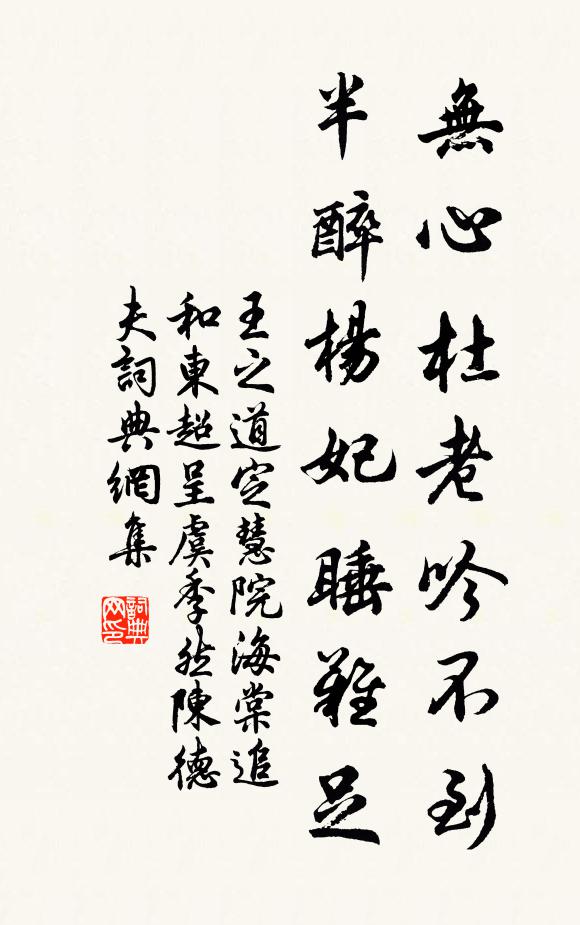 無心杜老吟不到
半醉楊妃睡難足
王之道定慧院海棠追
和東超呈虞季然陳德
夫詞典網集
詞典
网印